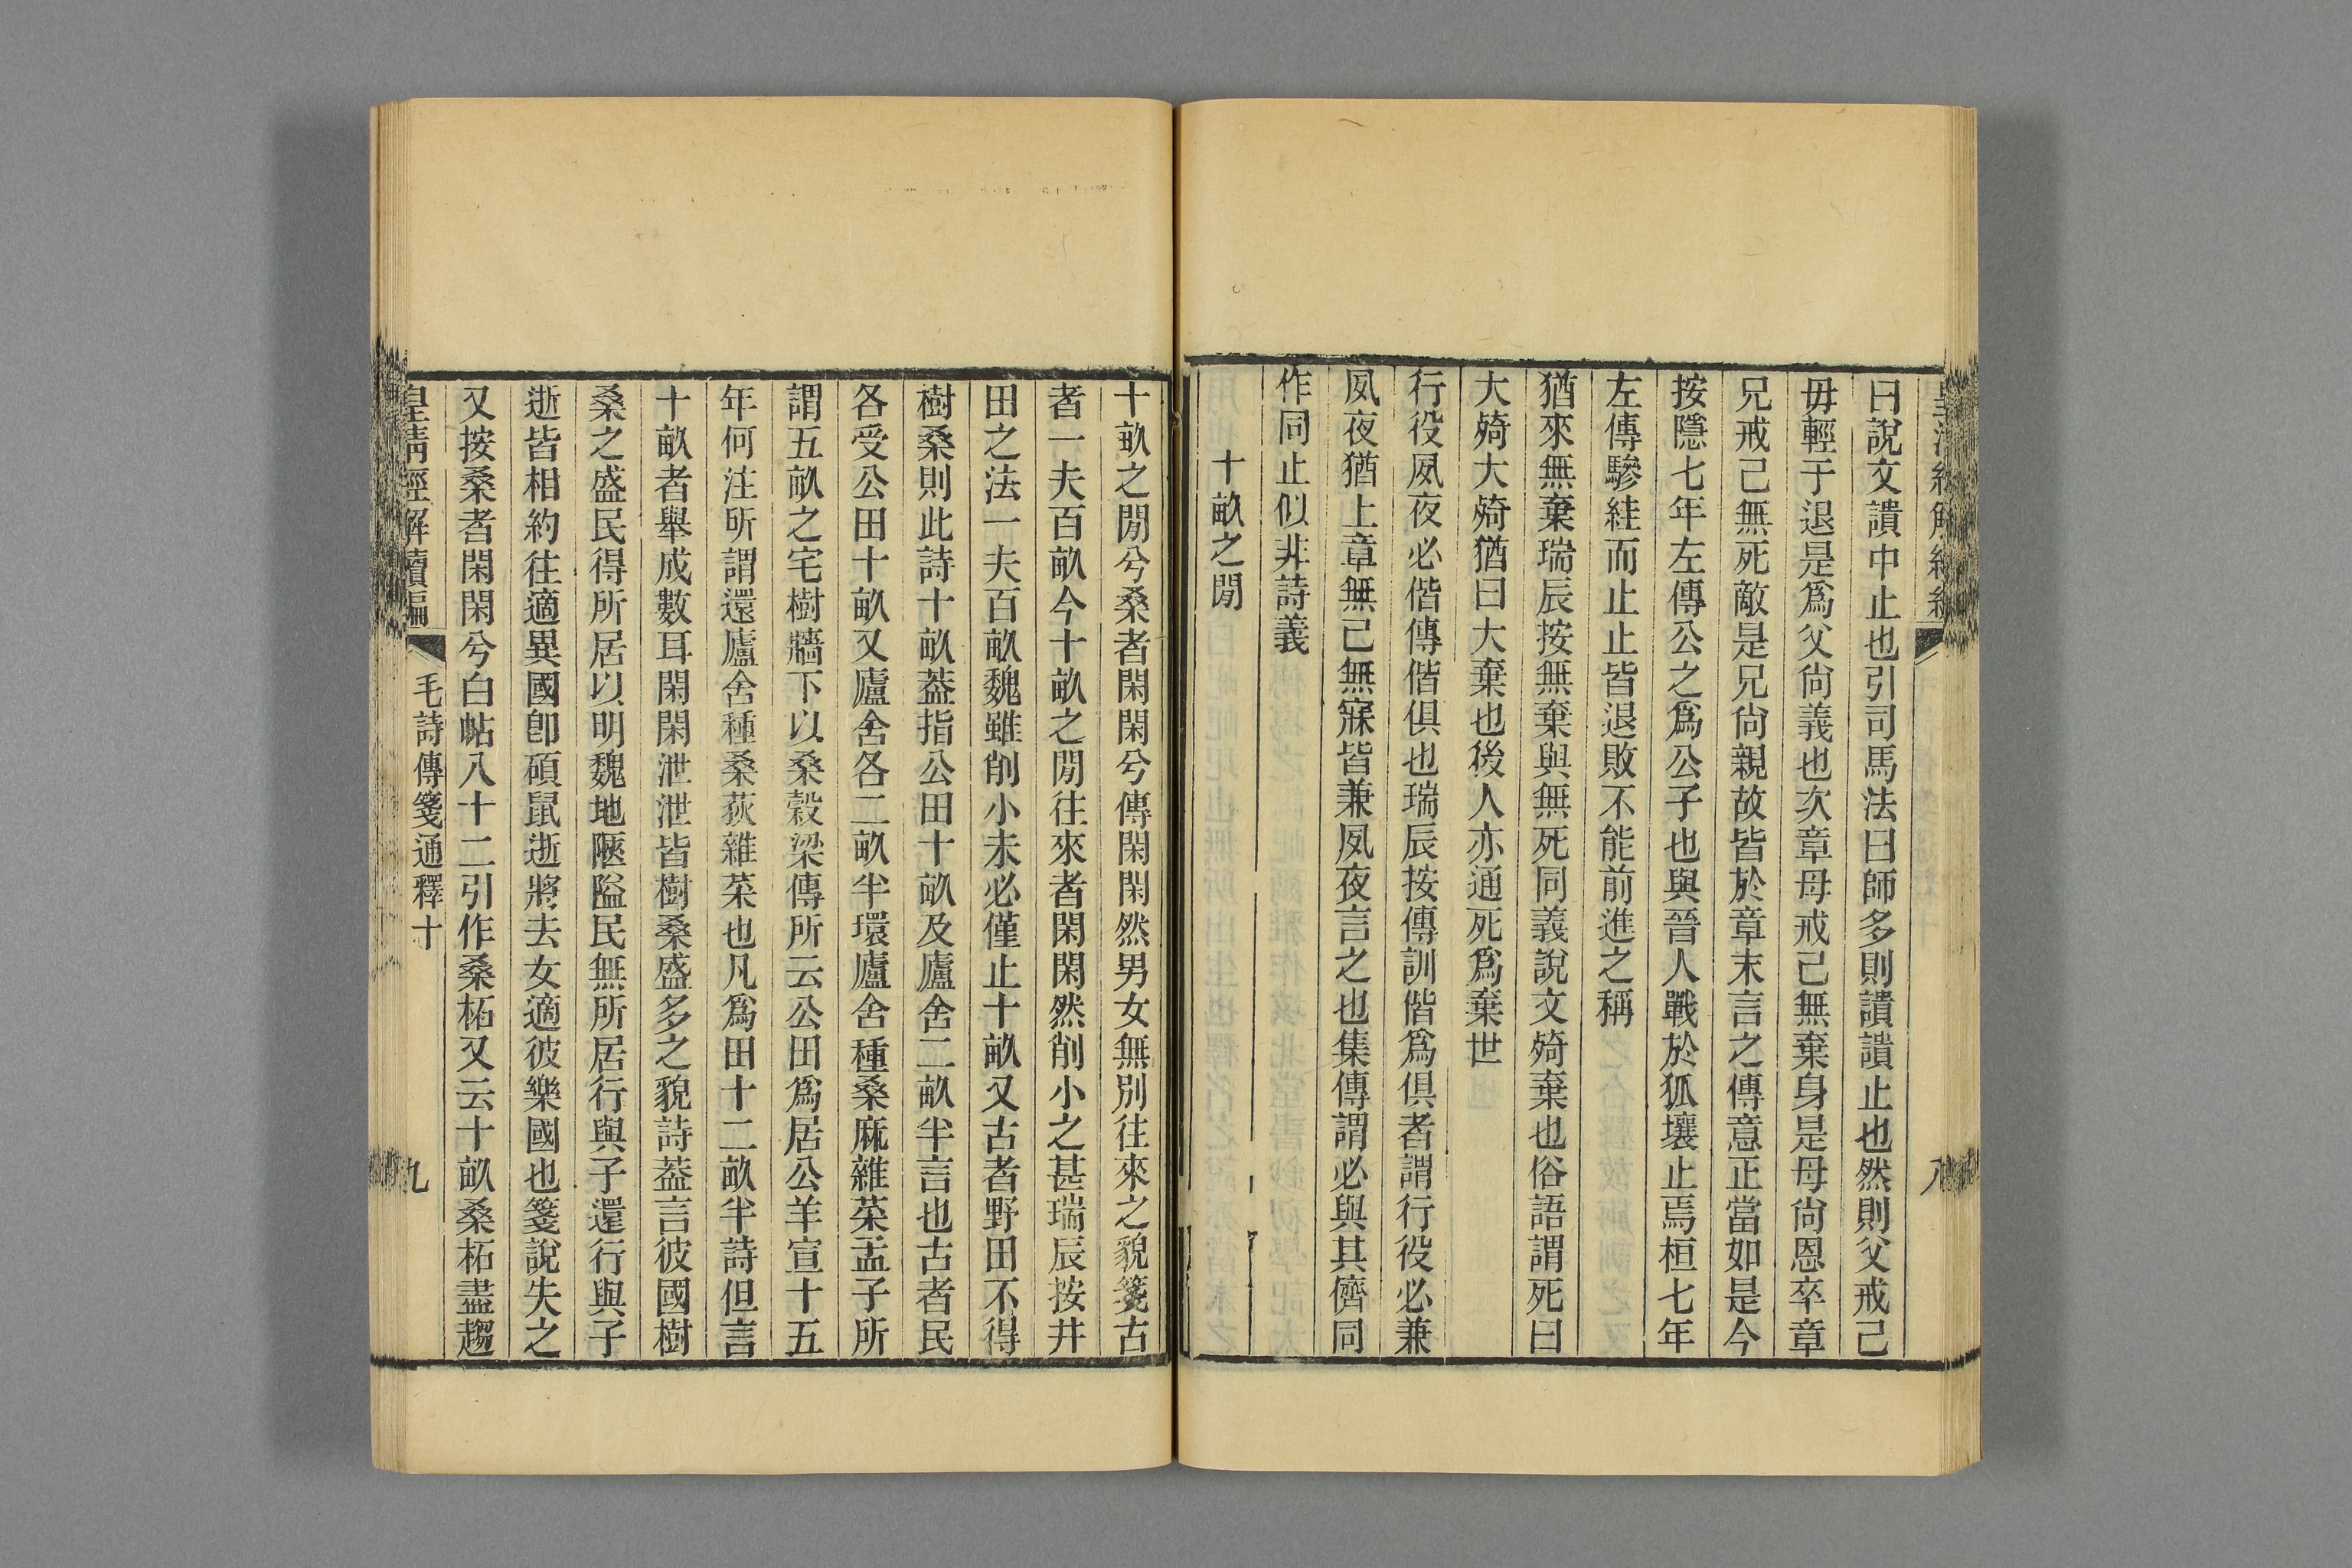 曰說文讃中止也引司馬法曰師多則讃讃止也然則父戒己
毋輕于退是爲父尙義也次章母戒己無棄身是母尙恩卒章
兄戒己無死敵是兄尙親故皆於章末言之傳意正當如是今
按隱七年左傳公之爲公子也與晉人戰於狐壤止焉桓七年
左傳驂絓而止止皆退敗不能前進之稱
猶來無棄瑞辰按無棄與無死同義說文㱦棄也俗語謂死曰
大㱦大㱦猶曰大棄也後人亦通死爲棄世
行役夙夜必偕傳偕俱也瑞辰按傳訓偕爲俱者謂行役必兼
夙夜猶上章無已無寐皆兼夙夜言之也集傳謂必與其儕同
作同止似非詩義
十畝之閒
十畝之閒兮桑者閑閑兮傳閑閑然男女無別往來之貌箋古
者一夫百畝今十畝之閒往來者閑閑然削小之甚瑞辰按井
田之法一夫百畝魏雖削小未必僅止十畝又古者野田不得
樹桑則此詩十畝葢指公田十畝及廬舍二畝半言也古者民
各受公田十畝又廬舍各二畝半環廬舍種桑麻雜菜孟子所
謂五畝之宅樹牆下以桑穀梁傳所云公田爲居公羊宣十五
年何注所謂還廬舍種桑荻雜菜也凡爲田十二畝半詩但言
十畝者舉成數耳閑閑泄泄皆樹桑盛多之貌詩葢言彼國樹
桑之盛民得所居以明魏地陿隘民無所居行與子還行與子
逝皆相約往適異國卽碩鼠逝將去女適彼樂國也箋說失之
又按桑者閑閑兮白帖八十二引作桑柘又云十畝桑柘盡趨
皇清經解續編
毛詩傳箋通釋十
九